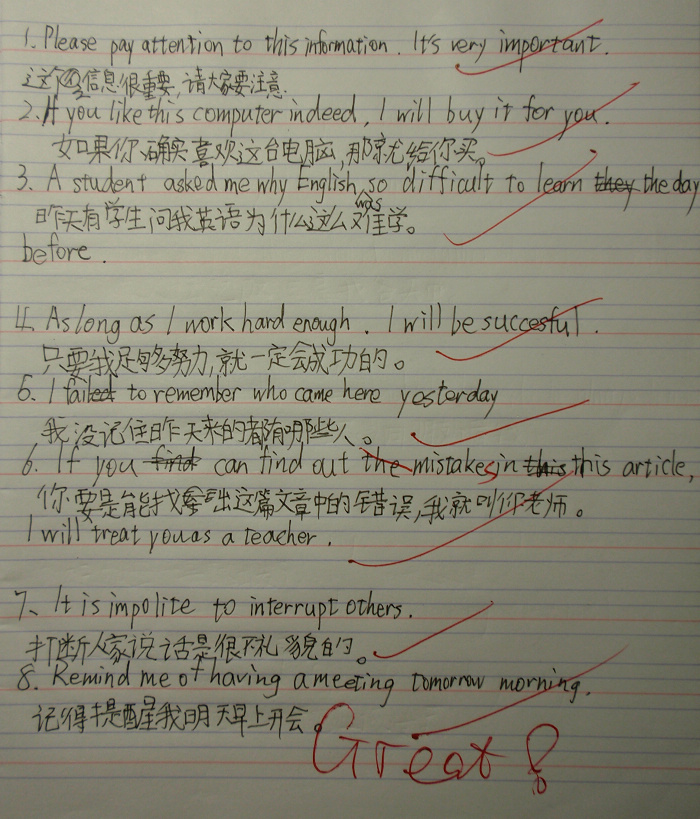 1. Please pay attention to this information. It's very important.
这个信息很重要,请大家要注意.
2. If you like this computer indeed, I will buy it for you.
如果你确实喜欢这台电脑,那就给你买。
3. A student asked me why English was so difficult to learn they the day
昨天有学生问我英语为什么这么难学。
before.
4. As long as I work hard enough. I will be succesful.
只要我足够努力,就一定会成功的。
5. I failed to remember who came here yesterday
我没记住昨天来的都有哪些人。
6. If you find can find out the mistakes in this this article,
你要是能找出这篇文章中的错误,我就叫你老师。
I will treat you as a teacher.
7、It is impolite to interrupt others.
打断人家说话是很不礼貌的。
8. Remind me of having a meeting tomorrow morning.
记得提醒我明天早上开会。
Great!